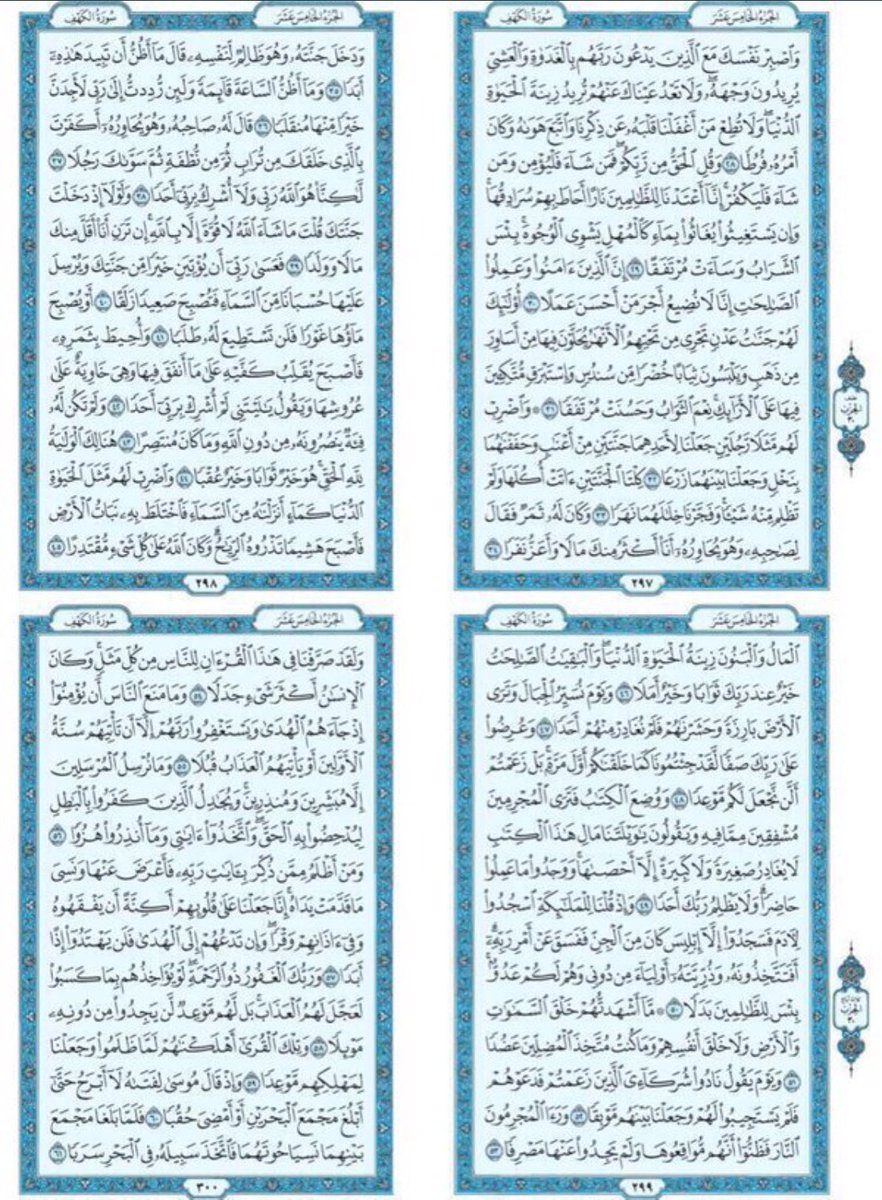 سُورَةُ الكَهْفِ
الجُزْءُ الخَامِسَ عَشَرَ
وَٱصْبِرْ نَفْسَكَ مَعَ ٱلَّذِينَ يَدْعُونَ رَبَّهُم بِٱلْغَدَوٰةِ وَٱلْعَشِيِّ
يُرِيدُونَ وَجْهَهُۥ وَلَا تَعْدُ عَيْنَاكَ عَنْهُمْ تُرِيدُ زِينَةَ ٱلْحَيَوٰةِ
ٱلدُّنْيَا وَلَا تُطِعْ مَنْ أَغْفَلْنَا قَلْبَهُۥ عَن ذِكْرِنَا وَٱتَّبَعَ هَوَىٰهُ وَكَانَ
أَمْرُهُۥ فُرُطًا ٢٨ وَقُلِ ٱلْحَقُّ مِن رَّبِّكُمْ فَمَن شَآءَ فَلْيُؤْمِن وَمَن
شَآءَ فَلْيَكْفُرْ إِنَّآ أَعْتَدْنَا لِلظَّـٰلِمِينَ نَارًا أَحَاطَ بِهِمْ سُرَادِقُهَا
وَإِن يَسْتَغِيثُوا۟ يُغَاثُوا۟ بِمَآءٍ كَٱلْمُهْلِ يَشْوِى ٱلْوُجُوهَ بِئْسَ
ٱلشَّرَابُ وَسَآءَتْ مُرْتَفَقًا ٢٩ إِنَّ ٱلَّذِينَ ءَامَنُوا۟ وَعَمِلُوا۟
ٱلصَّـٰلِحَـٰتِ إِنَّا لَا نُضِيعُ أَجْرَ مَنْ أَحْسَنَ عَمَلًا ٣٠ أُو۟لَـٰٓئِكَ
لَهُمْ جَنَّـٰتُ عَدْنٍ تَجْرِى مِن تَحْتِهِمُ ٱلْأَنْهَـٰرُ يُحَلَّوْنَ فِيهَا مِنْ أَسَاوِرَ
مِن ذَهَبٍ وَيَلْبَسُونَ ثِيَابًا خُضْرًا مِّن سُندُسٍ وَإِسْتَبْرَقٍ مُّتَّكِـِٔينَ
فِيهَا عَلَى ٱلْأَرَآئِكِ نِعْمَ ٱلثَّوَابُ وَحَسُنَتْ مُرْتَفَقًا ٣١ ۞ وَٱضْرِبْ
لَهُم مَّثَلًا رَّجُلَيْنِ جَعَلْنَا لِأَحَدِهِمَا جَنَّتَيْنِ مِنْ أَعْنَـٰبٍ وَحَفَفْنَـٰهُمَا
بِنَخْلٍ وَجَعَلْنَا بَيْنَهُمَا زَرْعًا ٣٢ كِلْتَا ٱلْجَنَّتَيْنِ ءَاتَتْ أُكُلَهَا وَلَمْ
تَظْلِم مِّنْهُ شَيْـًٔا وَفَجَّرْنَا خِلَـٰلَهُمَا نَهَرًا ٣٣ وَكَانَ لَهُۥ ثَمَرٌ فَقَالَ
لِصَـٰحِبِهِۦ وَهُوَ يُحَاوِرُهُۥٓ أَنَا۠ أَكْثَرُ مِنكَ مَالًا وَأَعَزُّ نَفَرًا ٣٤
٢٩٧
سُورَةُ الكَهْفِ
الجُزْءُ الخَامِسَ عَشَرَ
وَدَخَلَ جَنَّتَهُۥ وَهُوَ ظَالِمٌ لِّنَفْسِهِۦ قَالَ مَآ أَظُنُّ أَن تَبِيدَ هَـٰذِهِۦٓ
أَبَدًا ٣٥ وَمَآ أَظُنُّ ٱلسَّاعَةَ قَآئِمَةً وَلَئِن رُّدِدتُّ إِلَىٰ رَبِّى لَأَجِدَنَّ
خَيْرًا مِّنْهَا مُنقَلَبًا ٣٦ قَالَ لَهُۥ صَاحِبُهُۥ وَهُوَ يُحَاوِرُهُۥٓ أَكَفَرْتَ
بِٱلَّذِى خَلَقَكَ مِن تُرَابٍ ثُمَّ مِن نُّطْفَةٍ ثُمَّ سَوَّىٰكَ رَجُلًا ٣٧
لَّـٰكِنَّا۠ هُوَ ٱللَّهُ رَبِّى وَلَآ أُشْرِكُ بِرَبِّىٓ أَحَدًا ٣٨ وَلَوْلَآ إِذْ دَخَلْتَ
جَنَّتَكَ قُلْتَ مَا شَآءَ ٱللَّهُ لَا قُوَّةَ إِلَّا بِٱللَّهِ إِن تَرَنِ أَنَا۠ أَقَلَّ مِنكَ
مَالًا وَوَلَدًا ٣٩ فَعَسَىٰ رَبِّىٓ أَن يُؤْتِيَنِ خَيْرًا مِّن جَنَّتِكَ وَيُرْسِلَ
عَلَيْهَا حُسْبَانًا مِّنَ ٱلسَّمَآءِ فَتُصْبِحَ صَعِيدًا زَلَقًا ٤٠ أَوْ يُصْبِحَ
مَآؤُهَا غَوْرًا فَلَن تَسْتَطِيعَ لَهُۥ طَلَبًا ٤١ وَأُحِيطَ بِثَمَرِهِۦ
فَأَصْبَحَ يُقَلِّبُ كَفَّيْهِ عَلَىٰ مَآ أَنفَقَ فِيهَا وَهِىَ خَاوِيَةٌ عَلَىٰ
عُرُوشِهَا وَيَقُولُ يَـٰلَيْتَنِى لَمْ أُشْرِكْ بِرَبِّىٓ أَحَدًا ٤٢ وَلَمْ تَكُن لَّهُۥ
فِئَةٌ يَنصُرُونَهُۥ مِن دُونِ ٱللَّهِ وَمَا كَانَ مُنتَصِرًا ٤٣ هُنَالِكَ ٱلْوَلَـٰيَةُ
لِلَّهِ ٱلْحَقِّ هُوَ خَيْرٌ ثَوَابًا وَخَيْرٌ عُقْبًا ٤٤ وَٱضْرِبْ لَهُم مَّثَلَ ٱلْحَيَوٰةِ
ٱلدُّنْيَا كَمَآءٍ أَنزَلْنَـٰهُ مِنَ ٱلسَّمَآءِ فَٱخْتَلَطَ بِهِۦ نَبَاتُ ٱلْأَرْضِ
فَأَصْبَحَ هَشِيمًا تَذْرُوهُ ٱلرِّيَـٰحُ وَكَانَ ٱللَّهُ عَلَىٰ كُلِّ شَىْءٍ مُّقْتَدِرًا ٤٥
٢٩٨
سُورَةُ الكَهْفِ
الجُزْءُ الخَامِسَ عَشَرَ
ٱلْمَالُ وَٱلْبَنُونَ زِينَةُ ٱلْحَيَوٰةِ ٱلدُّنْيَا وَٱلْبَـٰقِيَـٰتُ ٱلصَّـٰلِحَـٰتُ
خَيْرٌ عِندَ رَبِّكَ ثَوَابًا وَخَيْرٌ أَمَلًا ٤٦ وَيَوْمَ نُسَيِّرُ ٱلْجِبَالَ وَتَرَى
ٱلْأَرْضَ بَارِزَةً وَحَشَرْنَـٰهُمْ فَلَمْ نُغَادِرْ مِنْهُمْ أَحَدًا ٤٧ وَعُرِضُوا۟
عَلَىٰ رَبِّكَ صَفًّا لَّقَدْ جِئْتُمُونَا كَمَا خَلَقْنَـٰكُمْ أَوَّلَ مَرَّةٍ بَلْ زَعَمْتُمْ
أَلَّن نَّجْعَلَ لَكُم مَّوْعِدًا ٤٨ وَوُضِعَ ٱلْكِتَـٰبُ فَتَرَى ٱلْمُجْرِمِينَ
مُشْفِقِينَ مِمَّا فِيهِ وَيَقُولُونَ يَـٰوَيْلَتَنَا مَالِ هَـٰذَا ٱلْكِتَـٰبِ
لَا يُغَادِرُ صَغِيرَةً وَلَا كَبِيرَةً إِلَّآ أَحْصَىٰهَا وَوَجَدُوا۟ مَا عَمِلُوا۟
حَاضِرًا وَلَا يَظْلِمُ رَبُّكَ أَحَدًا ٤٩ وَإِذْ قُلْنَا لِلْمَلَـٰٓئِكَةِ ٱسْجُدُوا۟
لِـَٔادَمَ فَسَجَدُوٓا۟ إِلَّآ إِبْلِيسَ كَانَ مِنَ ٱلْجِنِّ فَفَسَقَ عَنْ أَمْرِ رَبِّهِۦٓ
أَفَتَتَّخِذُونَهُۥ وَذُرِّيَّتَهُۥٓ أَوْلِيَآءَ مِن دُونِى وَهُمْ لَكُمْ عَدُوٌّۢ
بِئْسَ لِلظَّـٰلِمِينَ بَدَلًا ٥٠ ۞ مَّآ أَشْهَدتُّهُمْ خَلْقَ ٱلسَّمَـٰوَٰتِ
وَٱلْأَرْضِ وَلَا خَلْقَ أَنفُسِهِمْ وَمَا كُنتُ مُتَّخِذَ ٱلْمُضِلِّينَ عَضُدًا
٥١ وَيَوْمَ يَقُولُ نَادُوا۟ شُرَكَآءِىَ ٱلَّذِينَ زَعَمْتُمْ فَدَعَوْهُمْ
فَلَمْ يَسْتَجِيبُوا۟ لَهُمْ وَجَعَلْنَا بَيْنَهُم مَّوْبِقًا ٥٢ وَرَءَا ٱلْمُجْرِمُونَ
ٱلنَّارَ فَظَنُّوٓا۟ أَنَّهُم مُّوَاقِعُوهَا وَلَمْ يَجِدُوا۟ عَنْهَا مَصْرِفًا ٥٣
٢٩٩
سُورَةُ الكَهْفِ
الجُزْءُ الخَامِسَ عَشَرَ
وَلَقَدْ صَرَّفْنَا فِى هَـٰذَا ٱلْقُرْءَانِ لِلنَّاسِ مِن كُلِّ مَثَلٍ وَكَانَ
ٱلْإِنسَـٰنُ أَكْثَرَ شَىْءٍ جَدَلًا ٥٤ وَمَا مَنَعَ ٱلنَّاسَ أَن يُؤْمِنُوٓا۟
إِذْ جَآءَهُمُ ٱلْهُدَىٰ وَيَسْتَغْفِرُوا۟ رَبَّهُمْ إِلَّآ أَن تَأْتِيَهُمْ سُنَّةُ
ٱلْأَوَّلِينَ أَوْ يَأْتِيَهُمُ ٱلْعَذَابُ قُبُلًا ٥٥ وَمَا نُرْسِلُ ٱلْمُرْسَلِينَ
إِلَّا مُبَشِّرِينَ وَمُنذِرِينَ وَيُجَـٰدِلُ ٱلَّذِينَ كَفَرُوا۟ بِٱلْبَـٰطِلِ
لِيُدْحِضُوا۟ بِهِ ٱلْحَقَّ وَٱتَّخَذُوٓا۟ ءَايَـٰتِى وَمَآ أُنذِرُوا۟ هُزُوًا ٥٦
وَمَنْ أَظْلَمُ مِمَّن ذُكِّرَ بِـَٔايَـٰتِ رَبِّهِۦ فَأَعْرَضَ عَنْهَا وَنَسِىَ
مَا قَدَّمَتْ يَدَاهُ إِنَّا جَعَلْنَا عَلَىٰ قُلُوبِهِمْ أَكِنَّةً أَن يَفْقَهُوهُ
وَفِىٓ ءَاذَانِهِمْ وَقْرًا وَإِن تَدْعُهُمْ إِلَى ٱلْهُدَىٰ فَلَن يَهْتَدُوٓا۟ إِذًا
أَبَدًا ٥٧ وَرَبُّكَ ٱلْغَفُورُ ذُو ٱلرَّحْمَةِ لَوْ يُؤَاخِذُهُم بِمَا كَسَبُوا۟
لَعَجَّلَ لَهُمُ ٱلْعَذَابَ بَل لَّهُم مَّوْعِدٌ لَّن يَجِدُوا۟ مِن دُونِهِۦ
مَوْئِلًا ٥٨ وَتِلْكَ ٱلْقُرَىٰٓ أَهْلَكْنَـٰهُمْ لَمَّا ظَلَمُوا۟ وَجَعَلْنَا
لِمَهْلِكِهِم مَّوْعِدًا ٥٩ وَإِذْ قَالَ مُوسَىٰ لِفَتَىٰهُ لَآ أَبْرَحُ حَتَّىٰٓ
أَبْلُغَ مَجْمَعَ ٱلْبَحْرَيْنِ أَوْ أَمْضِىَ حُقُبًا ٦٠ فَلَمَّا بَلَغَا مَجْمَعَ
بَيْنِهِمَا نَسِيَا حُوتَهُمَا فَٱتَّخَذَ سَبِيلَهُۥ فِى ٱلْبَحْرِ سَرَبًا ٦١
٣٠٠